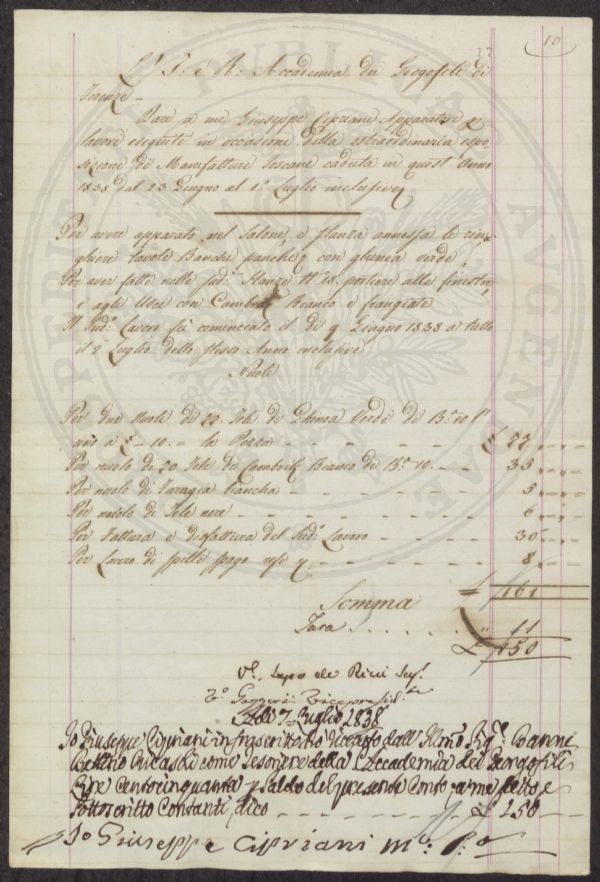 17 10
L' I. e R. Accademia dei Georgofili di
Firenze
Dare a me Giuseppe Cipriani Apparatore p
lavori eseguiti in occasione della estraordinaria espo-
sizione di Manifatture Toscane caduta in quest' Anno
1838 dal 23 Giugno al 1° Luglio inclusive
Per avere apparato nel Salone, e stanza annessa le rin-
ghiere tavole Banche panche con ghinea verde
Per aver fatte nelle sud.e Stanze N° 18. portiere alle finestre,
e agli Usci con Cambrik Bianco e frangiate
Il Sud.o Lavoro fu cominciato il dì 9 Giugno 1838 a tutto
il 2 Luglio dello stesso Anno inclusive
Nuoli
Per due Nuoli di 22. Tele di Ghinea Verde di B.a 10 l'
una a £ - 10. - la Pezza £ 77
Per nuolo di 20 Tele di Cambrik Bianco di B.a 10. 35
Per nuolo di Frangia bianca 5
Per nuolo di Tele nere 6
Per Fattura e disfattura del Sud.o Lavoro 30
Per Lavoro di spilli spago refe 8
Somma £ 161
Tara 11
£ 150
V.o Lapo de Ricci Seg.
V.o Vicepresid.te
Adì 7 Luglio 1838
Io Giuseppe Cipriani infrascritto ho ricevuto dall' Illmo Sig.
come Tesoriere della I. Accademia dei Georgofili
Lire Centocinquanta p Saldo del presente Conto a me detto e
Sottoscritto Contanti dico £ 150
Io Giuseppe Cipriani m.o p.a